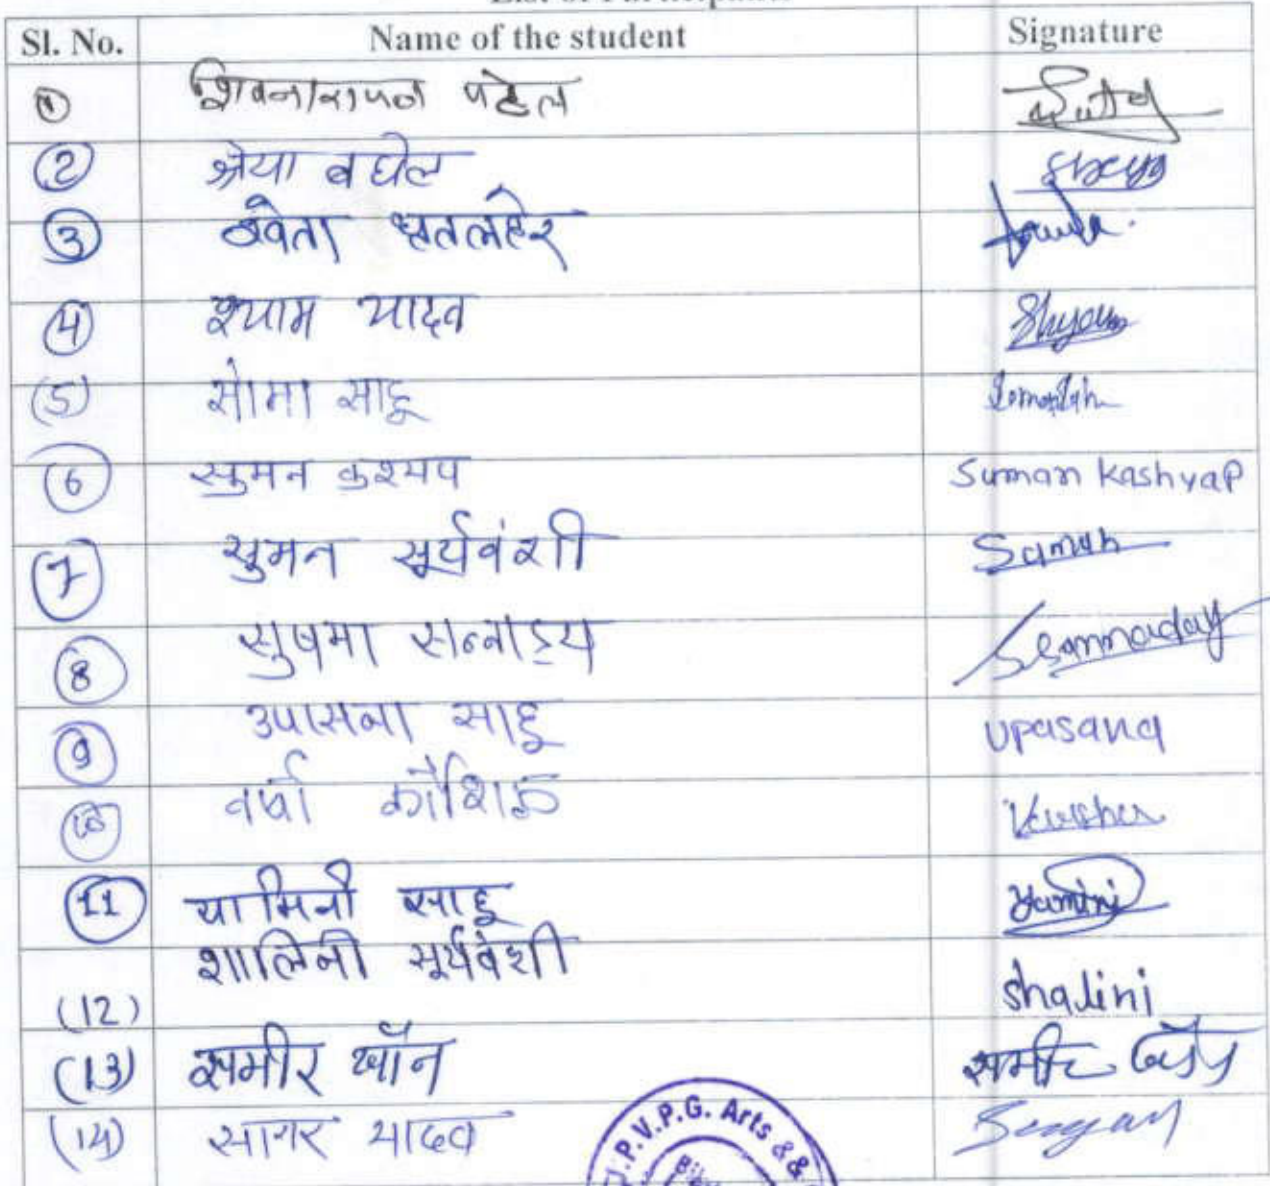 Sl. No. Name of the student Signature
① शिवनारायण पटेल
② श्रेया बघेल Shreya
③ श्वेता धृतलहेर
④ श्याम यादव Shyam
(5) सोमा साहू
⑥ सुमन कश्यप Suman Kashyap
⑦ सुमन सूर्यवंशी Suman
⑧ सुषमा सन्नाड्य
⑨ उपासना साहू Upasana
⑩ वर्षा कौशिक Varsha
⑪ यामिनी साहू Yamini
(12) शालिनी सूर्यवंशी Shalini
(13) समीर खॉन समीर
(14) सागर यादव
J.P.V.P.G. Arts &